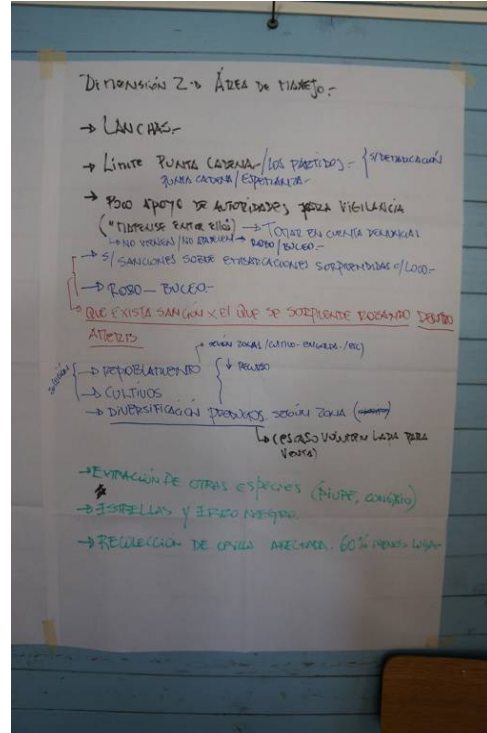 DIMENSIÓN 2 → ÁREA DE MANEJO.-
→ LANCHAS.-
→ LÍMITE PUNTA CADENA / LOS PARTIDOS.- } S/DEMARCACIÓN
PUNTA CADENA / ESPERANZA.-
→ POCO APOYO DE AUTORIDADES PARA VIGILANCIA
("MATENSE ENTRE ELLOS") → TOMAR EN CUENTA DENUNCIAS
→ NO VIENEN / NO APARECEN → ROBO / BUCEO.-
→ S/ SANCIONES SOBRE EMBARCACIONES SORPRENDIDAS C/LOCO.-
→ ROBO - BUCEO.-
→ QUE EXISTA SANCIÓN X EL QUE SE SORPRENDE ROBANDO DENTRO
AMERB
→ SEGÚN ZONAS / CULTIVO - /
SOLUCIÓN { → REPOBLAMIENTO { ↓ RECURSO
→ CULTIVOS
→ DIVERSIFICACIÓN PRODUCTOS SEGÚN ZONA
↳ (ESCASO VOLUMEN PARA
VENTA)
→ EXTRACCIÓN DE OTRAS ESPECIES (PIURE, CONGRIO)
→ ESTRELLAS Y ERIZO NEGRO.
→ RECOLECCIÓN DE AFECTADA. 60% MENOS LUGA-